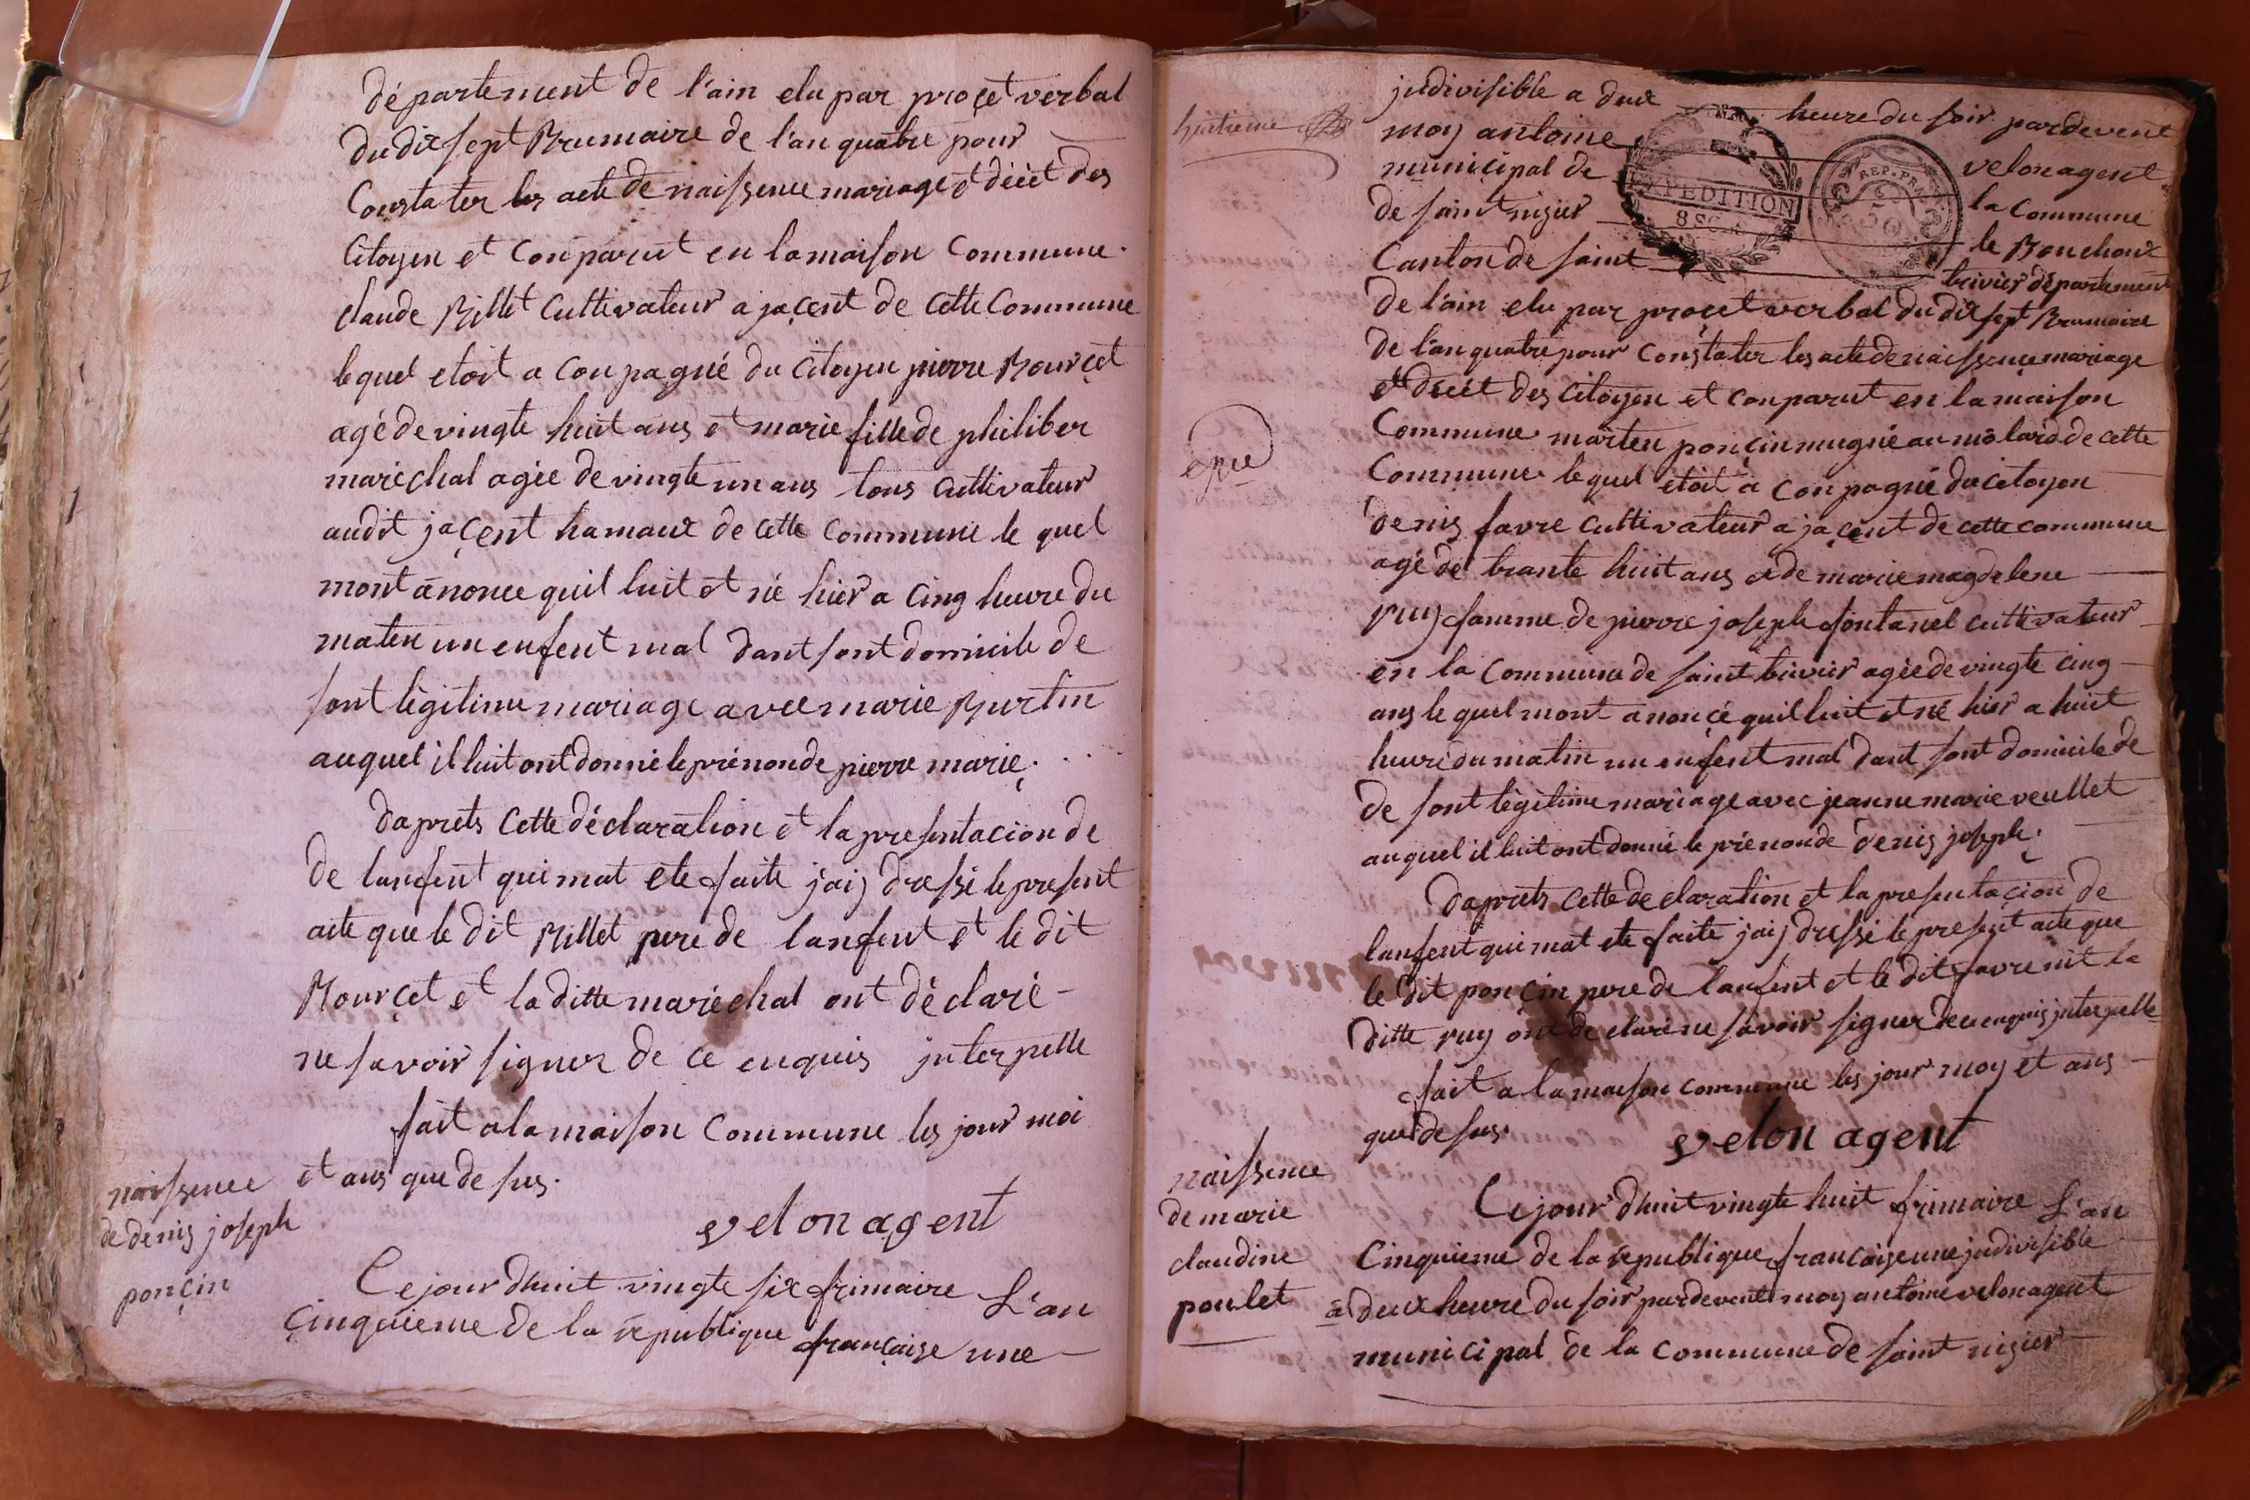 département de l'ain elu par proçet verbal
du dix sept Brumaire de l'an quatre pour
Constater les acte de naissence mariage et décèt des
Citoyen et Conparut en la maison Commune.
claude Billet Cultivateur a jaçent de cette Commune
le quel etoit a Conpagné du Citoyen pierre Bourçet
agé de vingte huit ans et marie fille de philiber
maréchal agée de vingte un ans tous cultivateur
audit jaçent hamaux de cette Commune le quel
mont anonce quil luit et né hier a Cinq heure du
maten un enfent mal dant sont domicile de
sont légitime mariage avec marie Burtin
auquel il luit ont donné le prénon de pierre marie.
daprets Cette déclaration et la presentacion de
de lanfent qui mat ete faite jaij dressé le present
acte que le dit Billet pere de lanfent et le dit
Bourçet et la ditte maréchal ont déclaré
ne savoir signer de ce enquis jnterpelle
fait a la maison Commune les jour moi
et ans que de sus.
velon agent
naissence
de denis joseph
ponçin
Ce jour dhuit vingte six frimaire L'an
Çinquieme de la republique française une
huitieme
jndivisible a deux heure du soir pardevent
moy antoine velon agent
municipal de la Commune
de saint nizier le Bouchoux
Canton de saint trivier département
EXPEDITION
REP. FRA
50
de l'ain elu par proçet verbal du dix sept Brumaire
de l'an quatre pour Constater les acte de naissence mariage
et décèt des Citoyen et Conparut en la maison
Commune marten ponçin mugnié au molard de cette
Commune le quel étoit a Conpagné du Citoyen
denis favre cultivateur a jaçent de cette commune
agé de trante huit ans et de marie magdelene
puy famme de pierre joseph fontanel cultivateur
en la Commune de saint trivier agée de vingte cinq
ans le quel mont anonçé quil luit et né hier a huit
heure du matin un enfent mal dant sont domicile de
de sont légitime mariage avec jeanne marie veullet
auquel il luit ont donné le prénon de denis joseph.
daprets Cette declaration et la presentaçion de
lanfent qui mat ete faite jaij dressé le present acte que
le dit ponçin pere de lanfent et le dit favre nit la
ditte puy ont declaré ne savoir signer de ce enquis jnterpelle
fait a la maison commune les jour moy et ans
que de sus.
velon agent
naissence
de marie
claudine
poulet
Ce jour dhuit vingte huit frimaire L'an
Cinquieme de la republique française une jndivisible
a deux heure du soir pardevent moy antoine velon agent
municipal de la Commune de saint nizier